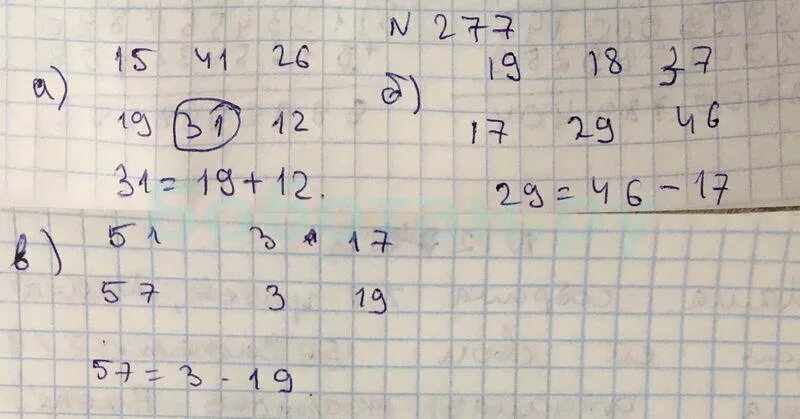 N 277
а) 15 41 26
19 31 12
31 = 19 + 12.
б) 19 18 37
17 29 46
29 = 46 - 17
в) 51 3 17
57 3 19
57 = 3 · 19